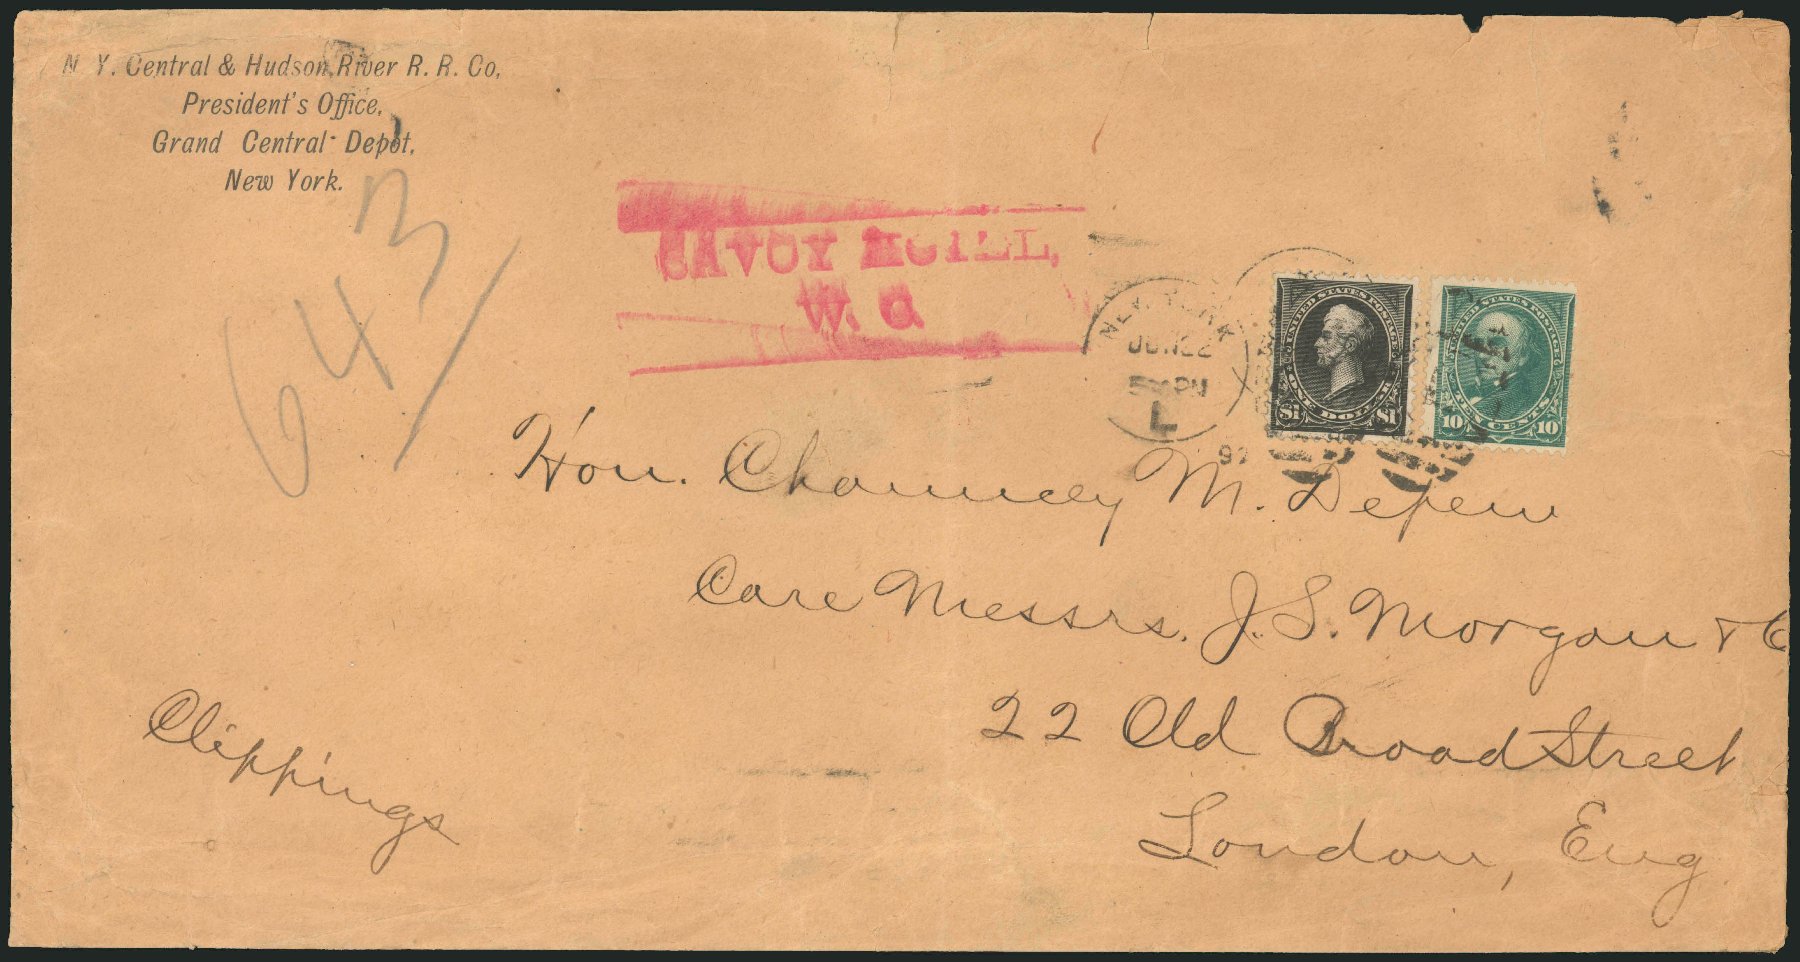 N. Y. Central & Hudson River R. R. Co,
President's Office,
Grand Central Depot,
New York.
643
SAVOY HOTEL,
W. C
NEW YORK
JUN 22
PM
L
97
UNITED STATES POSTAGE
ONE DOLLAR
$1 $1
UNITED STATES POSTAGE
10 TEN CENTS 10
Hon. Chauncey M. Depew
Care Messrs. J. S. Morgan & C
22 Old Broad Street
London, Eng
Clippings